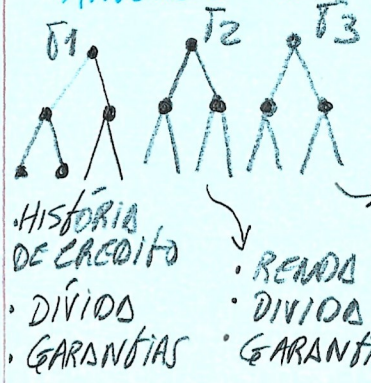 T1 T2 T3
• HISTÓRIA
DE CREDITO
• DÍVIDA
• GARANTIAS
• RENDA
• DIVIDA